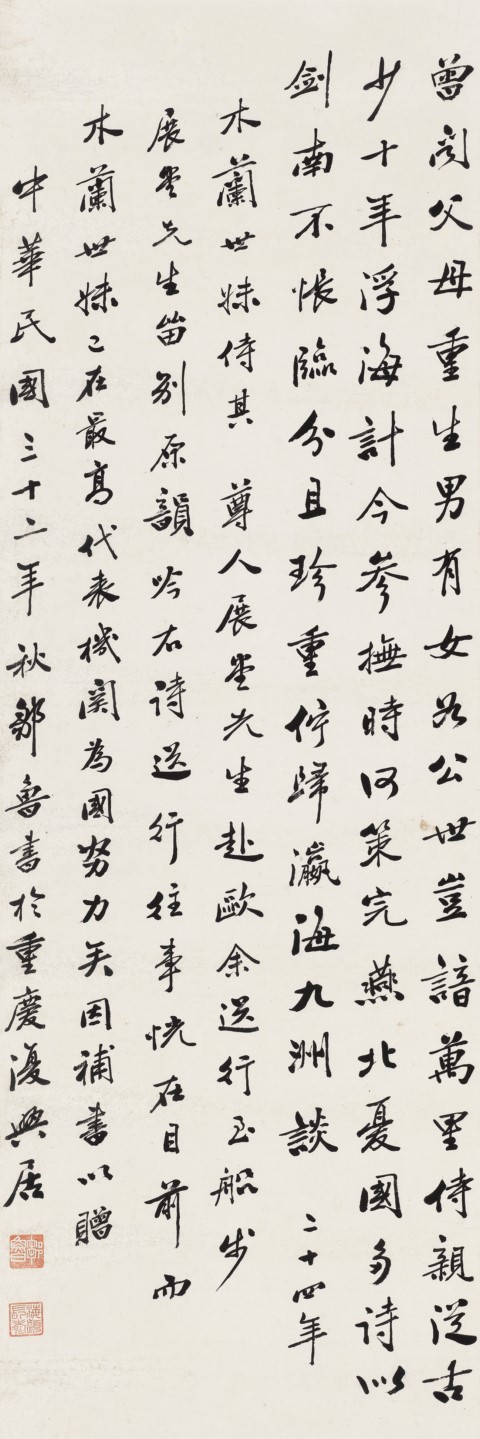 曾聞父母重生男有女若公世豈諳萬里侍親從古
少十年浮海計今參撫時何策完燕北憂國多詩似
劍南不悵臨分且珍重佇歸瀛海九洲談 二十四年
木蘭世妹侍其 尊人展堂先生赴歐余送行至船步
展堂先生留別原韻吟右詩送行往事恍在目前而
木蘭世妹已在最高代表機關為國努力矣因補書以贈
中華民國三十二年秋鄒魯書於重慶復興居
鄒魯